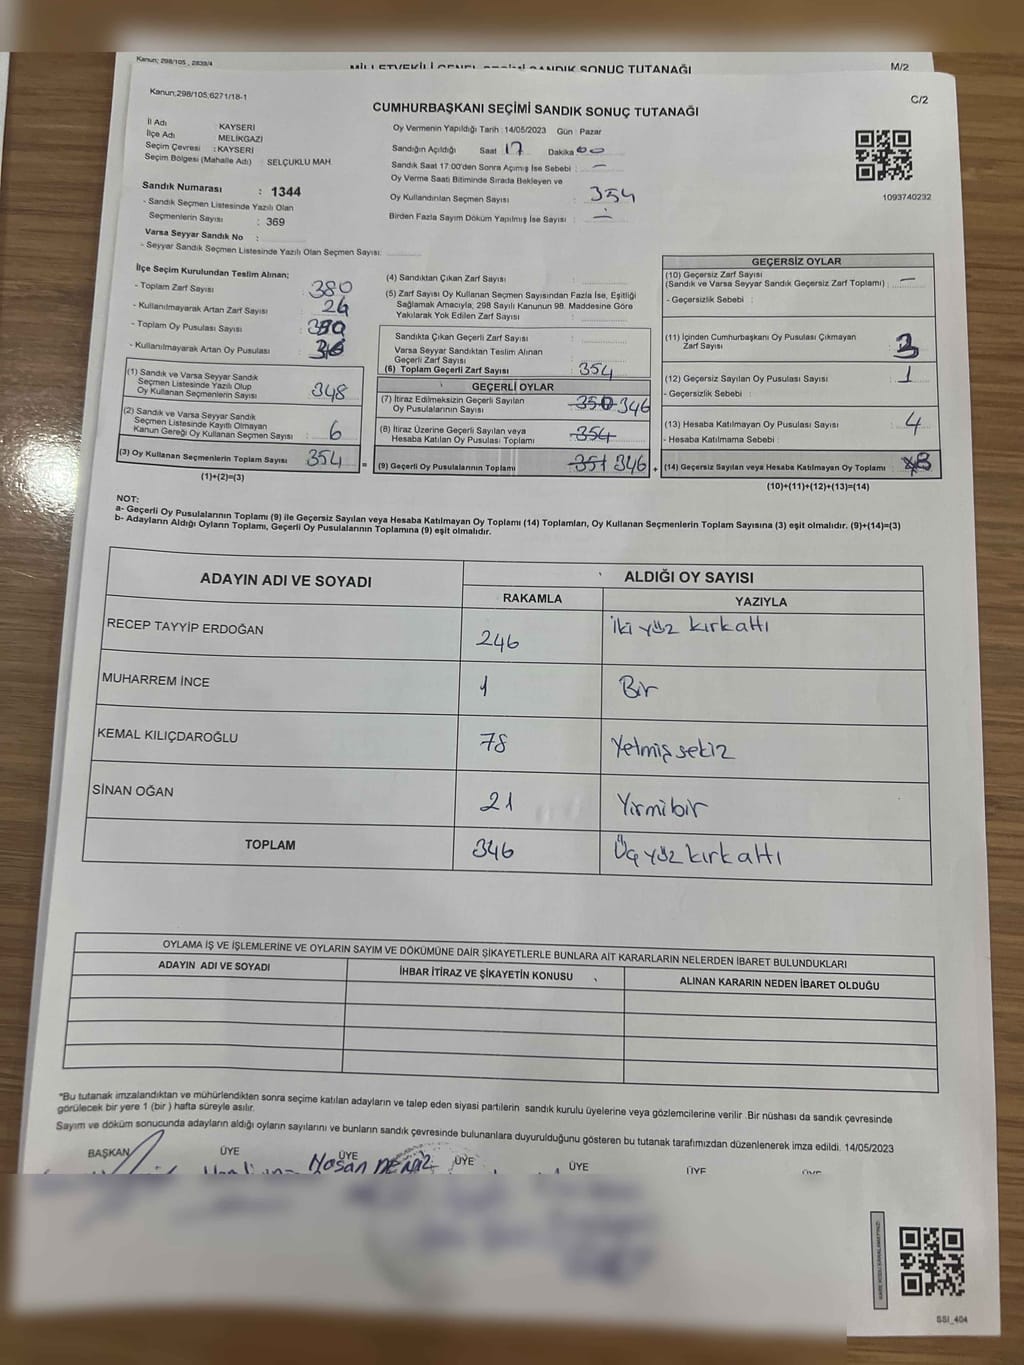 Kanun; 298/105 , 2839/4
MİLLETVEKİLİ GENEL SEÇİMİ SANDIK SONUÇ TUTANAĞI
M/2
Kanun;298/105;6271/18-1
CUMHURBAŞKANI SEÇİMİ SANDIK SONUÇ TUTANAĞI
C/2
İl Adı : KAYSERİ
İlçe Adı : MELİKGAZİ
Seçim Çevresi : KAYSERİ
Seçim Bölgesi (Mahalle Adı) : SELÇUKLU MAH.
Sandık Numarası : 1344
- Sandık Seçmen Listesinde Yazılı Olan
Seçmenlerin Sayısı : 369
Varsa Seyyar Sandık No :
- Seyyar Sandık Seçmen Listesinde Yazılı Olan Seçmen Sayısı:
Oy Vermenin Yapıldığı Tarih : 14/05/2023 Gün : Pazar
Sandığın Açıldığı Saat 17 Dakika 00
Sandık Saat 17:00'den Sonra Açımış İse Sebebi : –
Oy Verma Saati Bitiminde Sırada Bekleyen ve
Oy Kullandırılan Seçmen Sayısı : 354
Birden Fazla Sayım Döküm Yapılmış İse Sayısı :
1093740232
İlçe Seçim Kurulundan Teslim Alınan;
- Toplam Zarf Sayısı : 380
- Kullanılmayarak Artan Zarf Sayısı : 26
- Toplam Oy Pusulası Sayısı :
- Kullanılmayarak Artan Oy Pusulası :
(1) Sandık ve Varsa Seyyar Sandık
Seçmen Listesinde Yazılı Olup
Oy Kullanan Seçmenlerin Sayısı : 348
(2) Sandık ve Varsa Seyyar Sandık
Seçmen Listesinde Kayıtlı Olmayan
Kanun Gereği Oy Kullanan Seçmen Sayısı : 6
(3) Oy Kullanan Seçmenlerin Toplam Sayısı : 354
(1)+(2)=(3)
(4) Sandıktan Çıkan Zarf Sayısı :
(5) Zarf Sayısı Oy Kullanan Seçmen Sayısından Fazla İse, Eşitliği
Sağlamak Amacıyla; 298 Sayılı Kanunun 98. Maddesine Göre
Yakılarak Yok Edilen Zarf Sayısı :
Sandıkta Çıkan Geçerli Zarf Sayısı :
Varsa Seyyar Sandıktan Teslim Alınan
Geçerli Zarf Sayısı :
(6) Toplam Geçerli Zarf Sayısı : 354
GEÇERLİ OYLAR
(7) İtiraz Edilmeksizin Geçerli Sayılan
Oy Pusulalarının Sayısı : 350 346
(8) İtiraz Üzerine Geçerli Sayılan veya
Hesaba Katılan Oy Pusulası Toplamı : 354
= (9) Geçerli Oy Pusulalarının Toplamı : 351 346 +
GEÇERSİZ OYLAR
(10) Geçersiz Zarf Sayısı
(Sandık ve Varsa Seyyar Sandık Geçersiz Zarf Toplamı) : –
- Geçersizlik Sebebi :
(11) İçinden Cumhurbaşkanı Oy Pusulası Çıkmayan
Zarf Sayısı : 3
(12) Geçersiz Sayılan Oy Pusulası Sayısı : 1
- Geçersizlik Sebebi :
(13) Hesaba Katılmayan Oy Pusulası Sayısı : 4
- Hesaba Katılmama Sebebi :
(14) Geçersiz Sayılan veya Hesaba Katılmayan Oy Toplamı : 8
(10)+(11)+(12)+(13)=(14)
NOT:
a- Geçerli Oy Pusulalarının Toplamı (9) ile Geçersiz Sayılan veya Hesaba Katılmayan Oy Toplamı (14) Toplamları, Oy Kullanan Seçmenlerin Toplam Sayısına (3) eşit olmalıdır. (9)+(14)=(3)
b- Adayların Aldığı Oyların Toplamı, Geçerli Oy Pusulalarının Toplamına (9) eşit olmalıdır.
ADAYIN ADI VE SOYADI
ALDIĞI OY SAYISI
RAKAMLA YAZIYLA
RECEP TAYYİP ERDOĞAN 246 İki yüz kırkaltı
MUHARREM İNCE 1 Bir
KEMAL KILIÇDAROĞLU 78 Yetmiş sekiz
SİNAN OĞAN 21 Yirmibir
TOPLAM 346 Üç yüz kırkaltı
OYLAMA İŞ VE İŞLEMLERİNE VE OYLARIN SAYIM VE DÖKÜMÜNE DAİR ŞİKAYETLERLE BUNLARA AİT KARARLARIN NELERDEN İBARET BULUNDUKLARI
ADAYIN ADI VE SOYADI İHBAR İTİRAZ VE ŞİKAYETİN KONUSU ALINAN KARARIN NEDEN İBARET OLDUĞU
*Bu tutanak imzalandıktan ve mühürlendikten sonra seçime katılan adayların ve talep eden siyasi partilerin sandık kurulu üyelerine veya gözlemcilerine verilir .Bir nüshası da sandık çevresinde
görülecek bir yere 1 (bir ) hafta süreyle asılır.
Sayım ve döküm sonucunda adayların aldığı oyların sayılarını ve bunların sandık çevresinde bulunanlara duyurulduğunu gösteren bu tutanak tarafımızdan düzenlenerek imza edildi. 14/05/2023
BAŞKAN ÜYE ÜYE ÜYE ÜYE ÜYE ÜYE
Hasan DENİZ
SSI_404